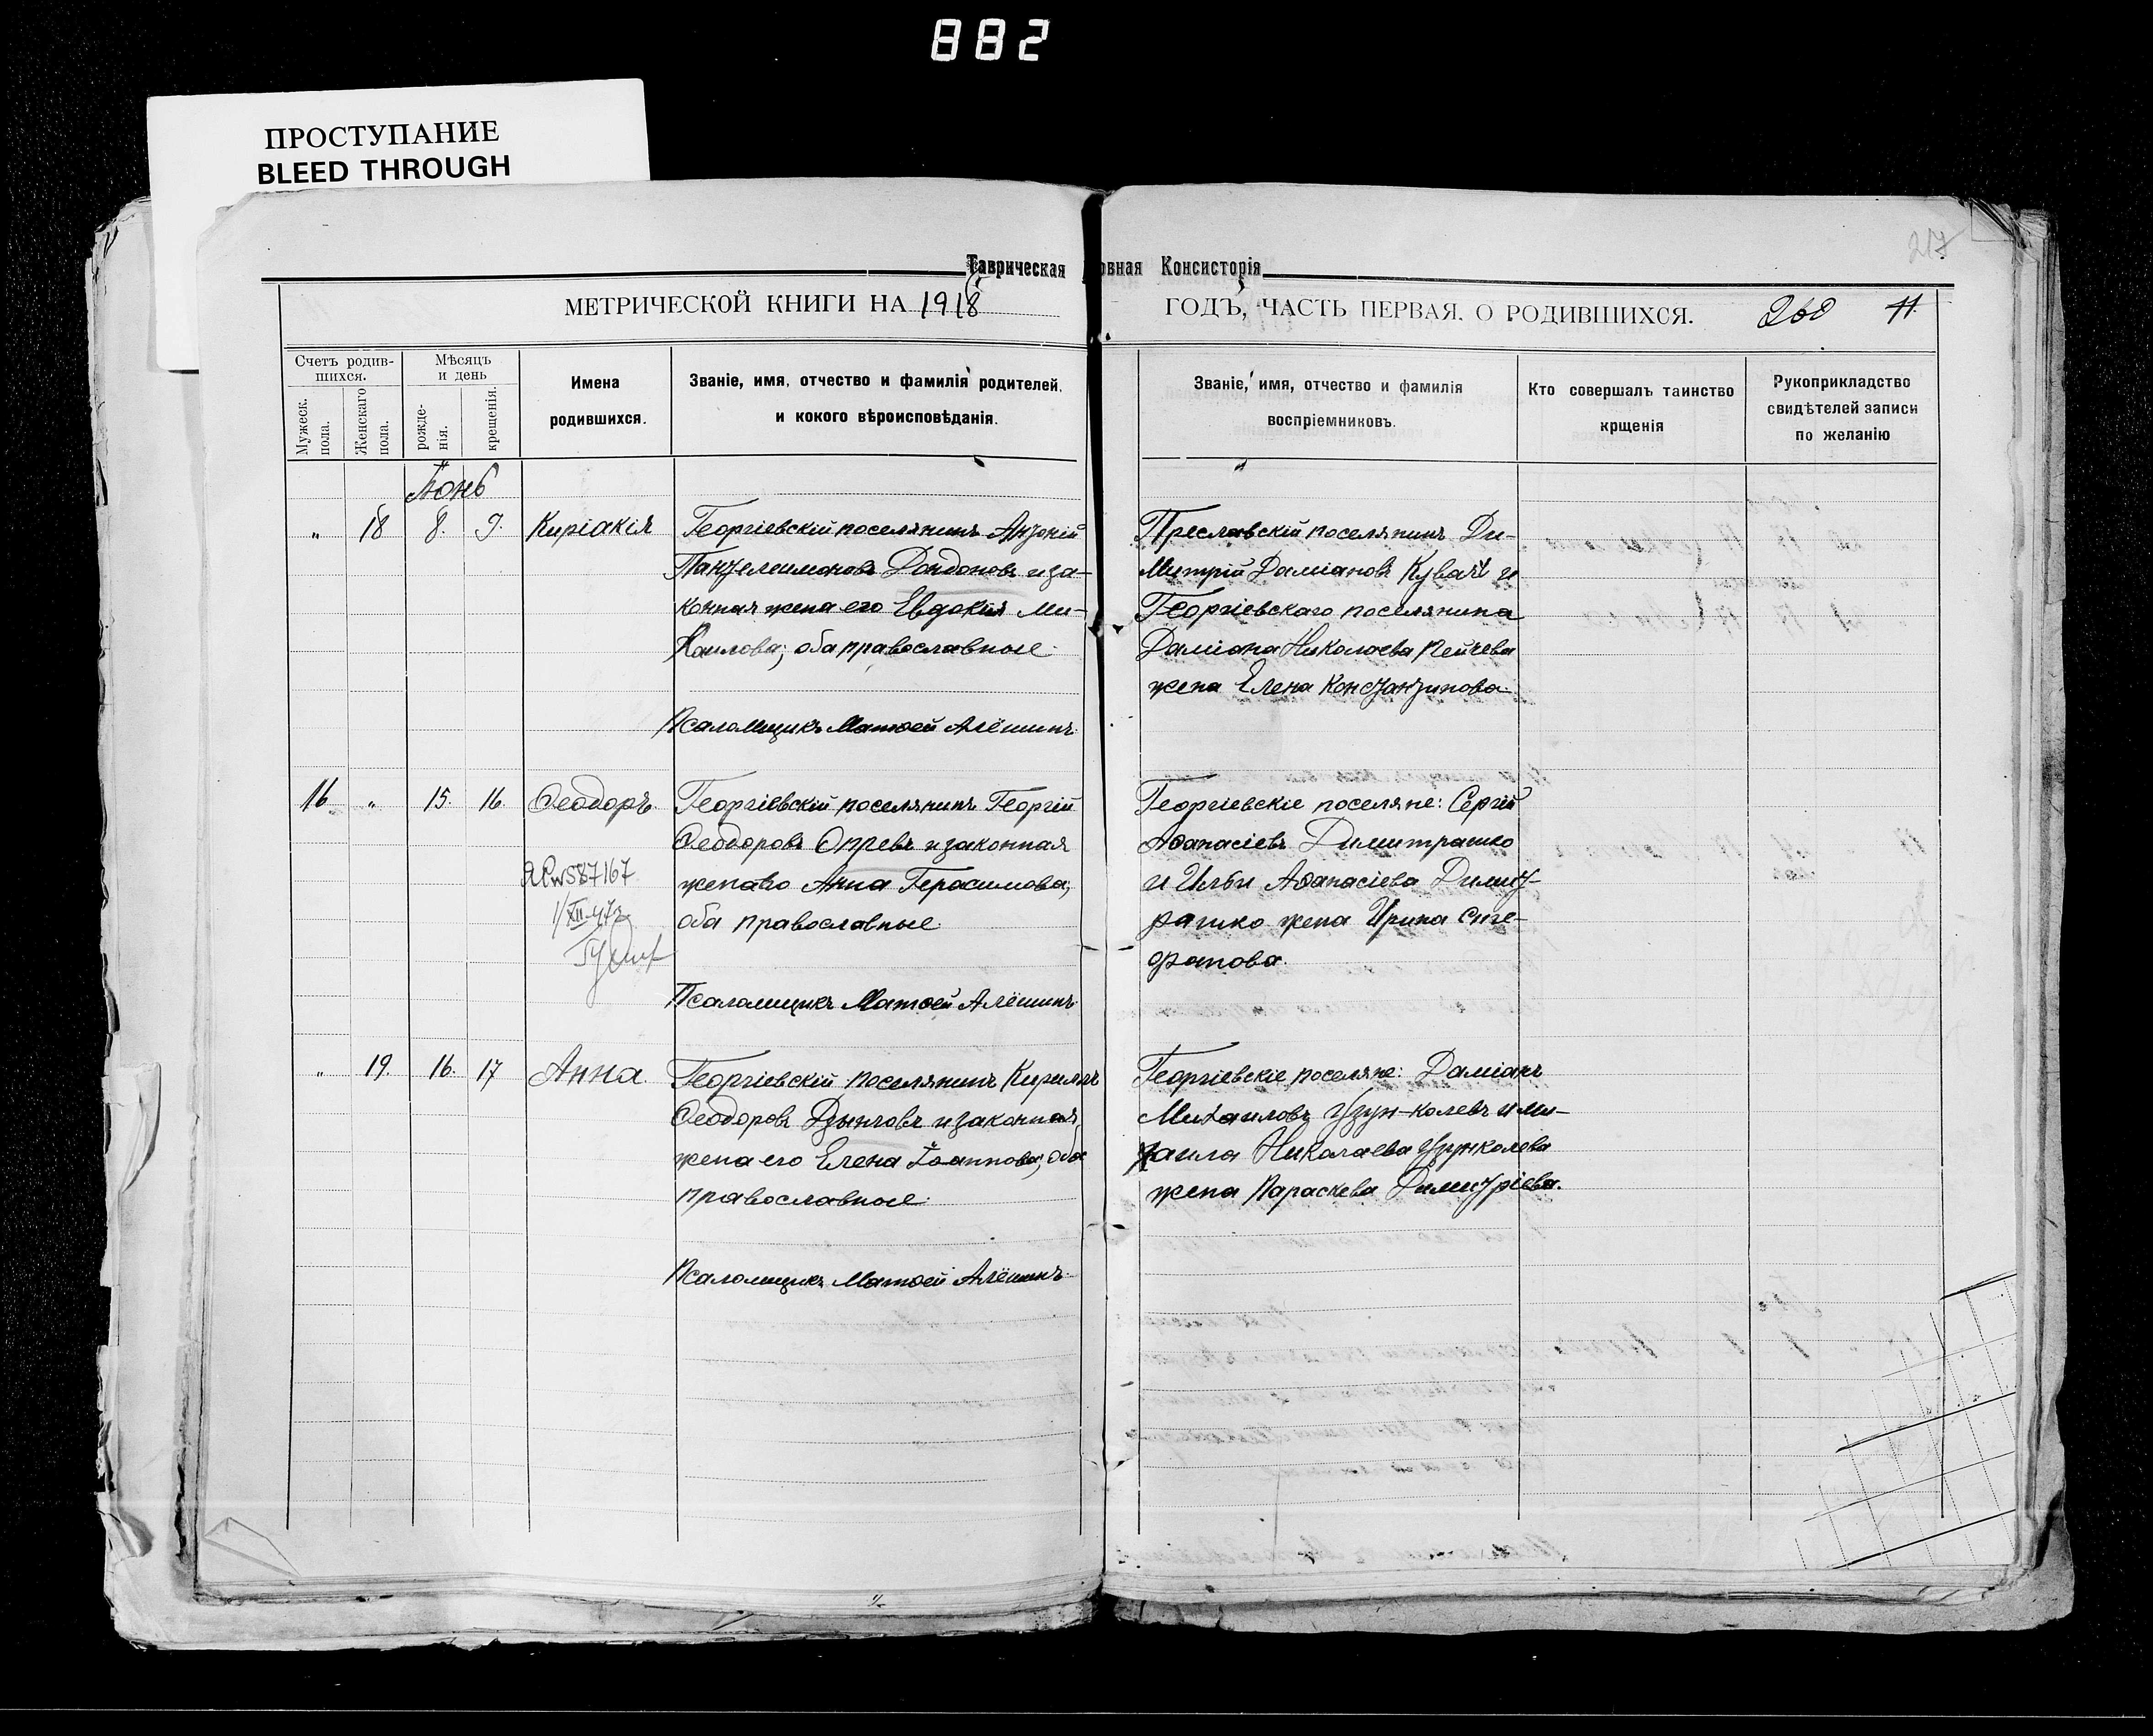 882
ПРОСТУПАНИЕ
BLEED THROUGH
Таврическая овная Консисторія
МЕТРИЧЕСКОЙ КНИГИ НА 1918 ГОДЪ, ЧАСТЬ ПЕРВАЯ. О РОДИВШИХСЯ. 11.
217
Счетъ родив-
шихся.
Мужеск.
пола.
Женскаго
пола.
Мѣсяцъ
и день
рожде-
нія.
крещенія.
Имена
родившихся.
Званіе, имя, отчество и фамилія родителей.
и кокого вѣроисповѣданія.
Званіе, имя, отчество и фамилія
воспріемниковъ.
Кто совершалъ таинство
крщенія
Рукоприкладство
свидѣтелей записи
по желанію
Іюнь
" 18 8. 9. Киріакія
Георгіевскій поселянинъ Антоній
Пантелеимоновъ Дондоновъ и за-
конная жена его Евдокия Ми-
хаилова; оба православные.
Псаломщикъ Матѳей Алёшинъ.
Преславскій поселянинъ Ди-
митрій Даміановъ Кувачъ и
Георгіевскаго поселянина
Даміана Николаева Пейчева
жена Елена Константинова.
16 " 15. 16. Ѳеодоръ.
587167
1/XII-47г
Георгіевскій поселянинъ Георгій
Ѳеодоровъ и законная
жена его Анна Герасимова;
оба православные.
Псаломщикъ Матѳей Алёшинъ.
Георгіевскіе поселяне: Сергій
Аѳанасіевъ Димитрашко
и Ильи Аѳанасіева Димит-
рашко жена Ирина
" 19. 16. 17 Анна.
Георгіевскій поселянинъ Кириллъ
Ѳеодоровъ и законная
жена его Елена Іоаннова; оба
православные.
Псаломщикъ Матѳей Алёшинъ.
Георгіевскіе поселяне: Даміанъ
Михаиловъ Узун-колевъ и Ми-
хаила Николаева Узунколева
жена Параскева Димитріева.